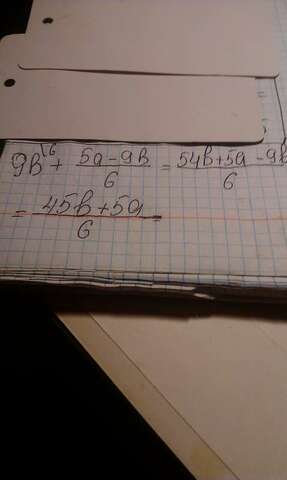 9b\6 + (5a-9b)/6 = (54b+5a-9b)/6
= (45b+5a)/6 =